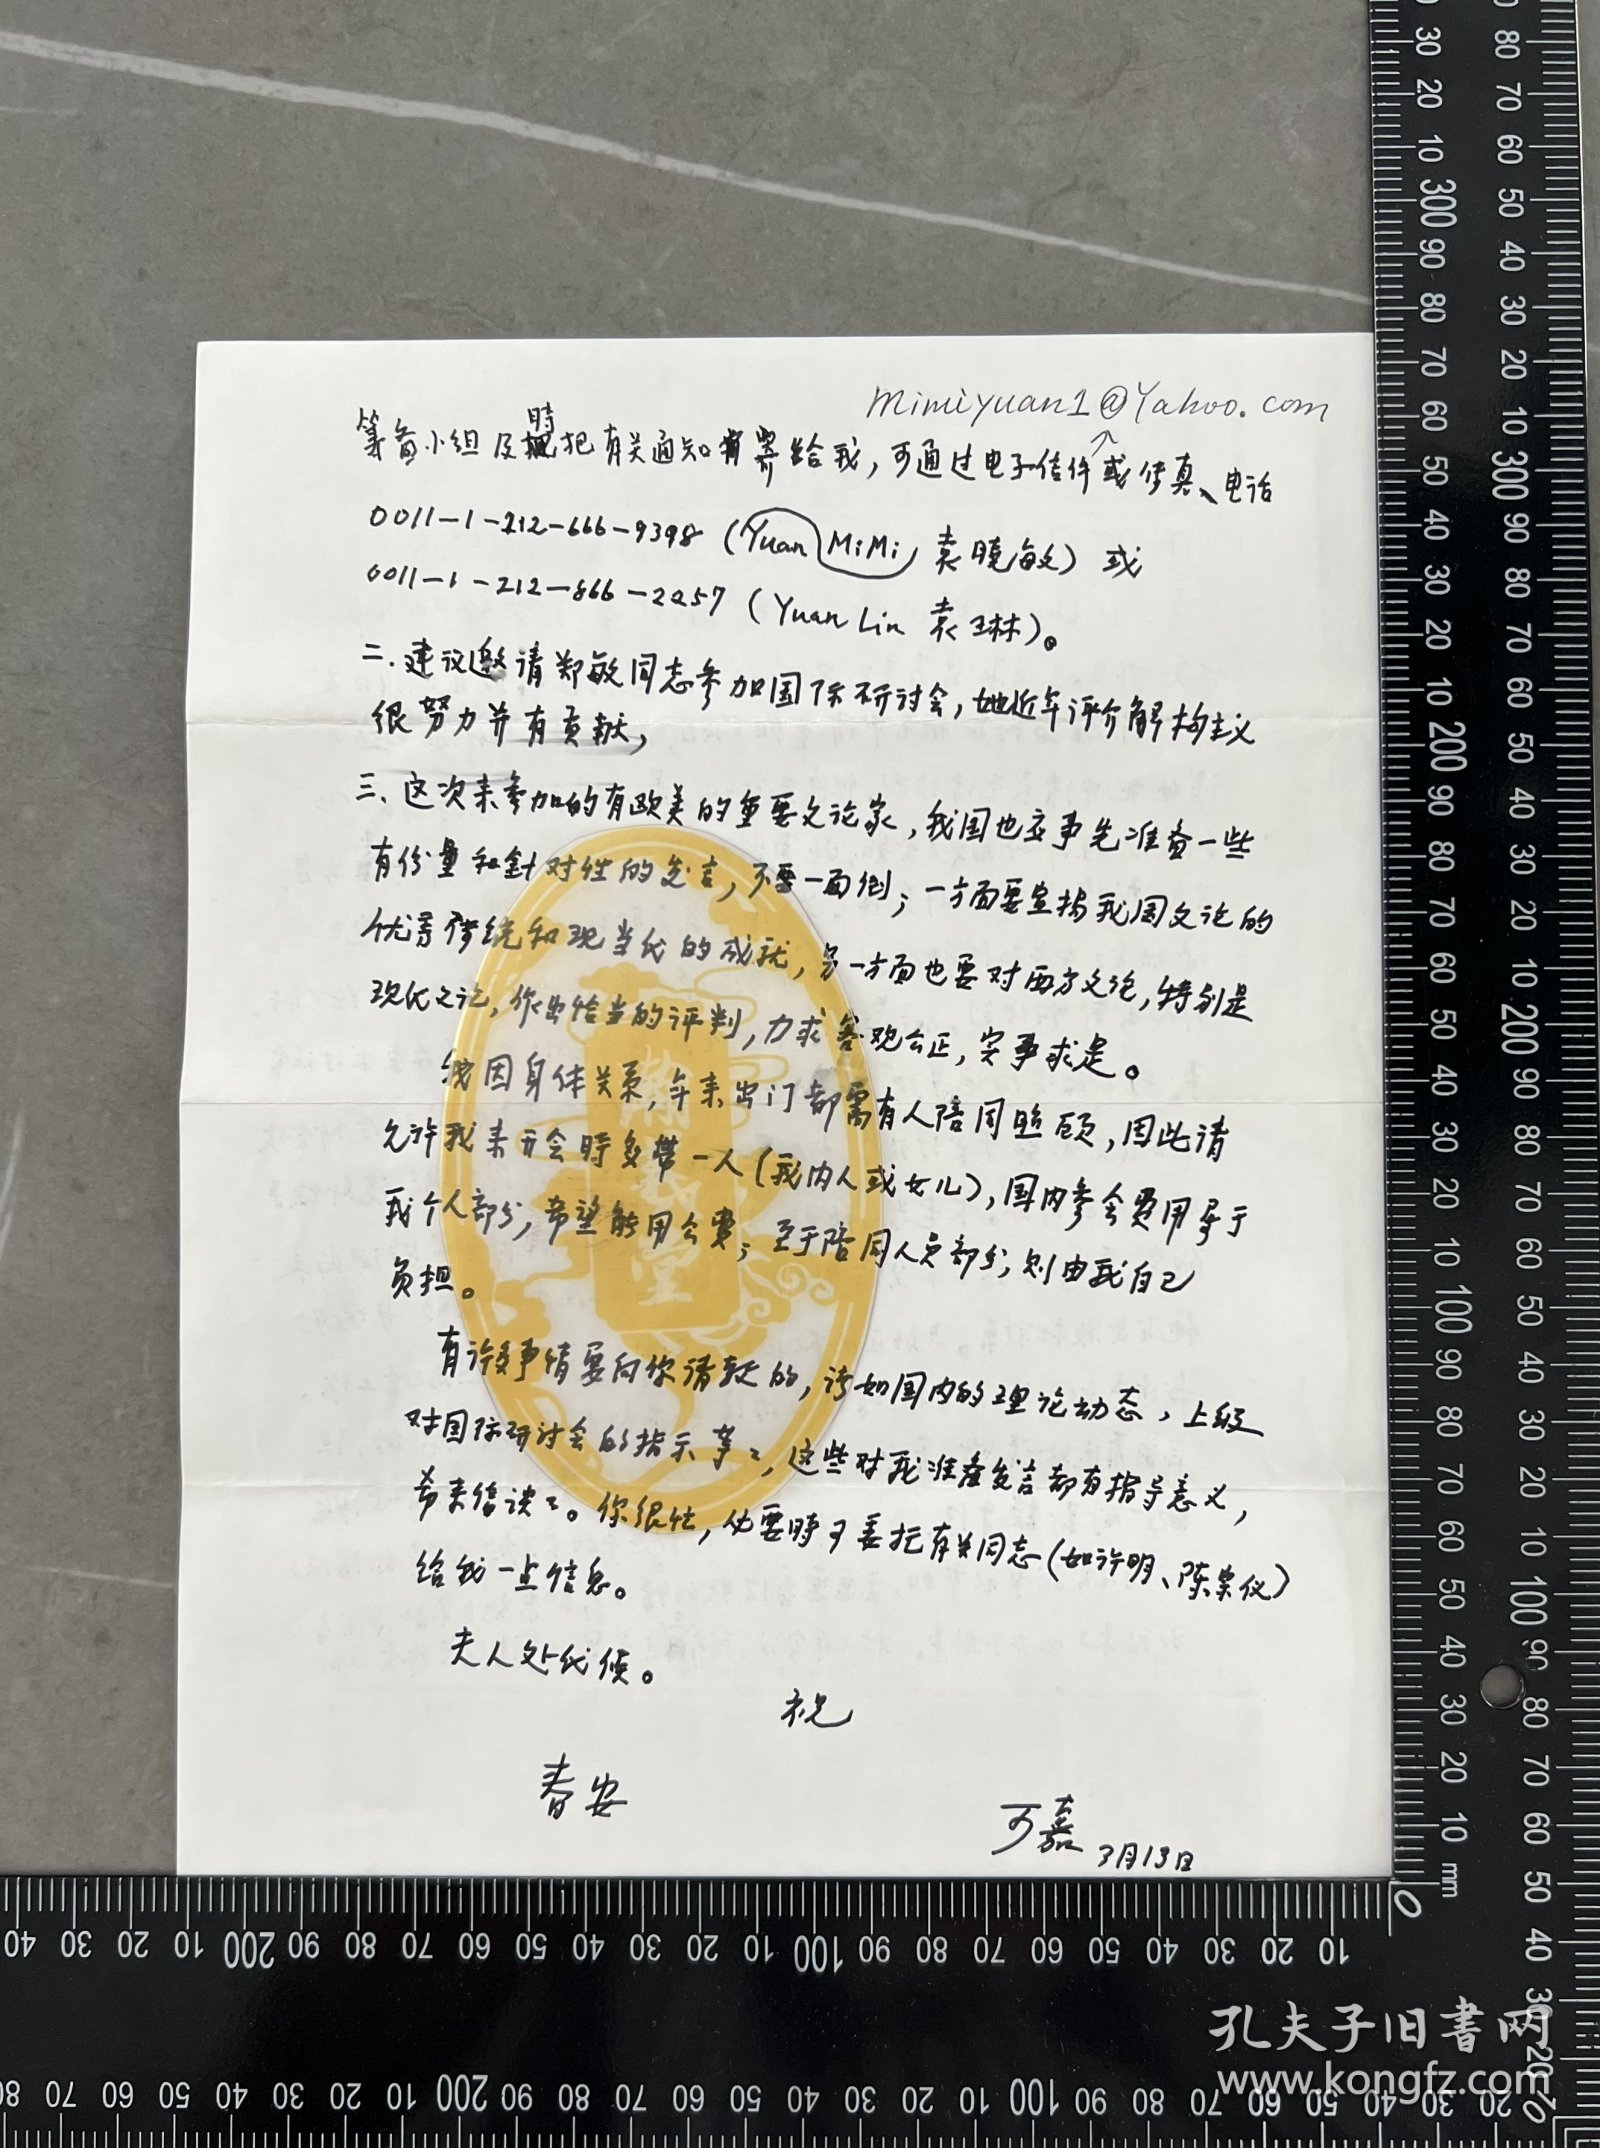 mimiyuan1@Yahoo.com
筹备小组及時把有关通知寄给我，可通过电子信件或传真、电话
0011-1-212-666-9398（Yuan MiMi 袁晓敏）或
0011-1-212-866-2257（Yuan Lin 袁琳）。
二.建议邀请郑敏同志参加国际研讨会，她近年评介解构主义
很努力并有贡献，
三、这次来参加的有欧美的重要文论家，我国也应事先准备一些
有份量和針对性的发言，不要一面倒；一方面要宣扬我国文论的
优秀传统和现当代的成就，另一方面也要对西方文论，特别是
现代文论，作出恰当的评判，力求客观公正，实事求是。
我因身体关系，年来出门都需有人陪同照顾，因此请
允许我来开会時多带一人（我内人或女儿），国内参会费用属于
我个人部分，希望能用公費；至于陪同人员部分，则由我自己
负担。
有许多事情要向你请教的，诸如国内的理论动态，上级
对国际研讨会的指示等々，这些对我准备发言都有指导意义，
希来信谈々。你很忙，必要時可委托有关同志（如许明、陈宗仪）
给我一点信息。
夫人处代候。
祝
春安
可嘉 3月13日
孔夫子旧書网
www.kongfz.com